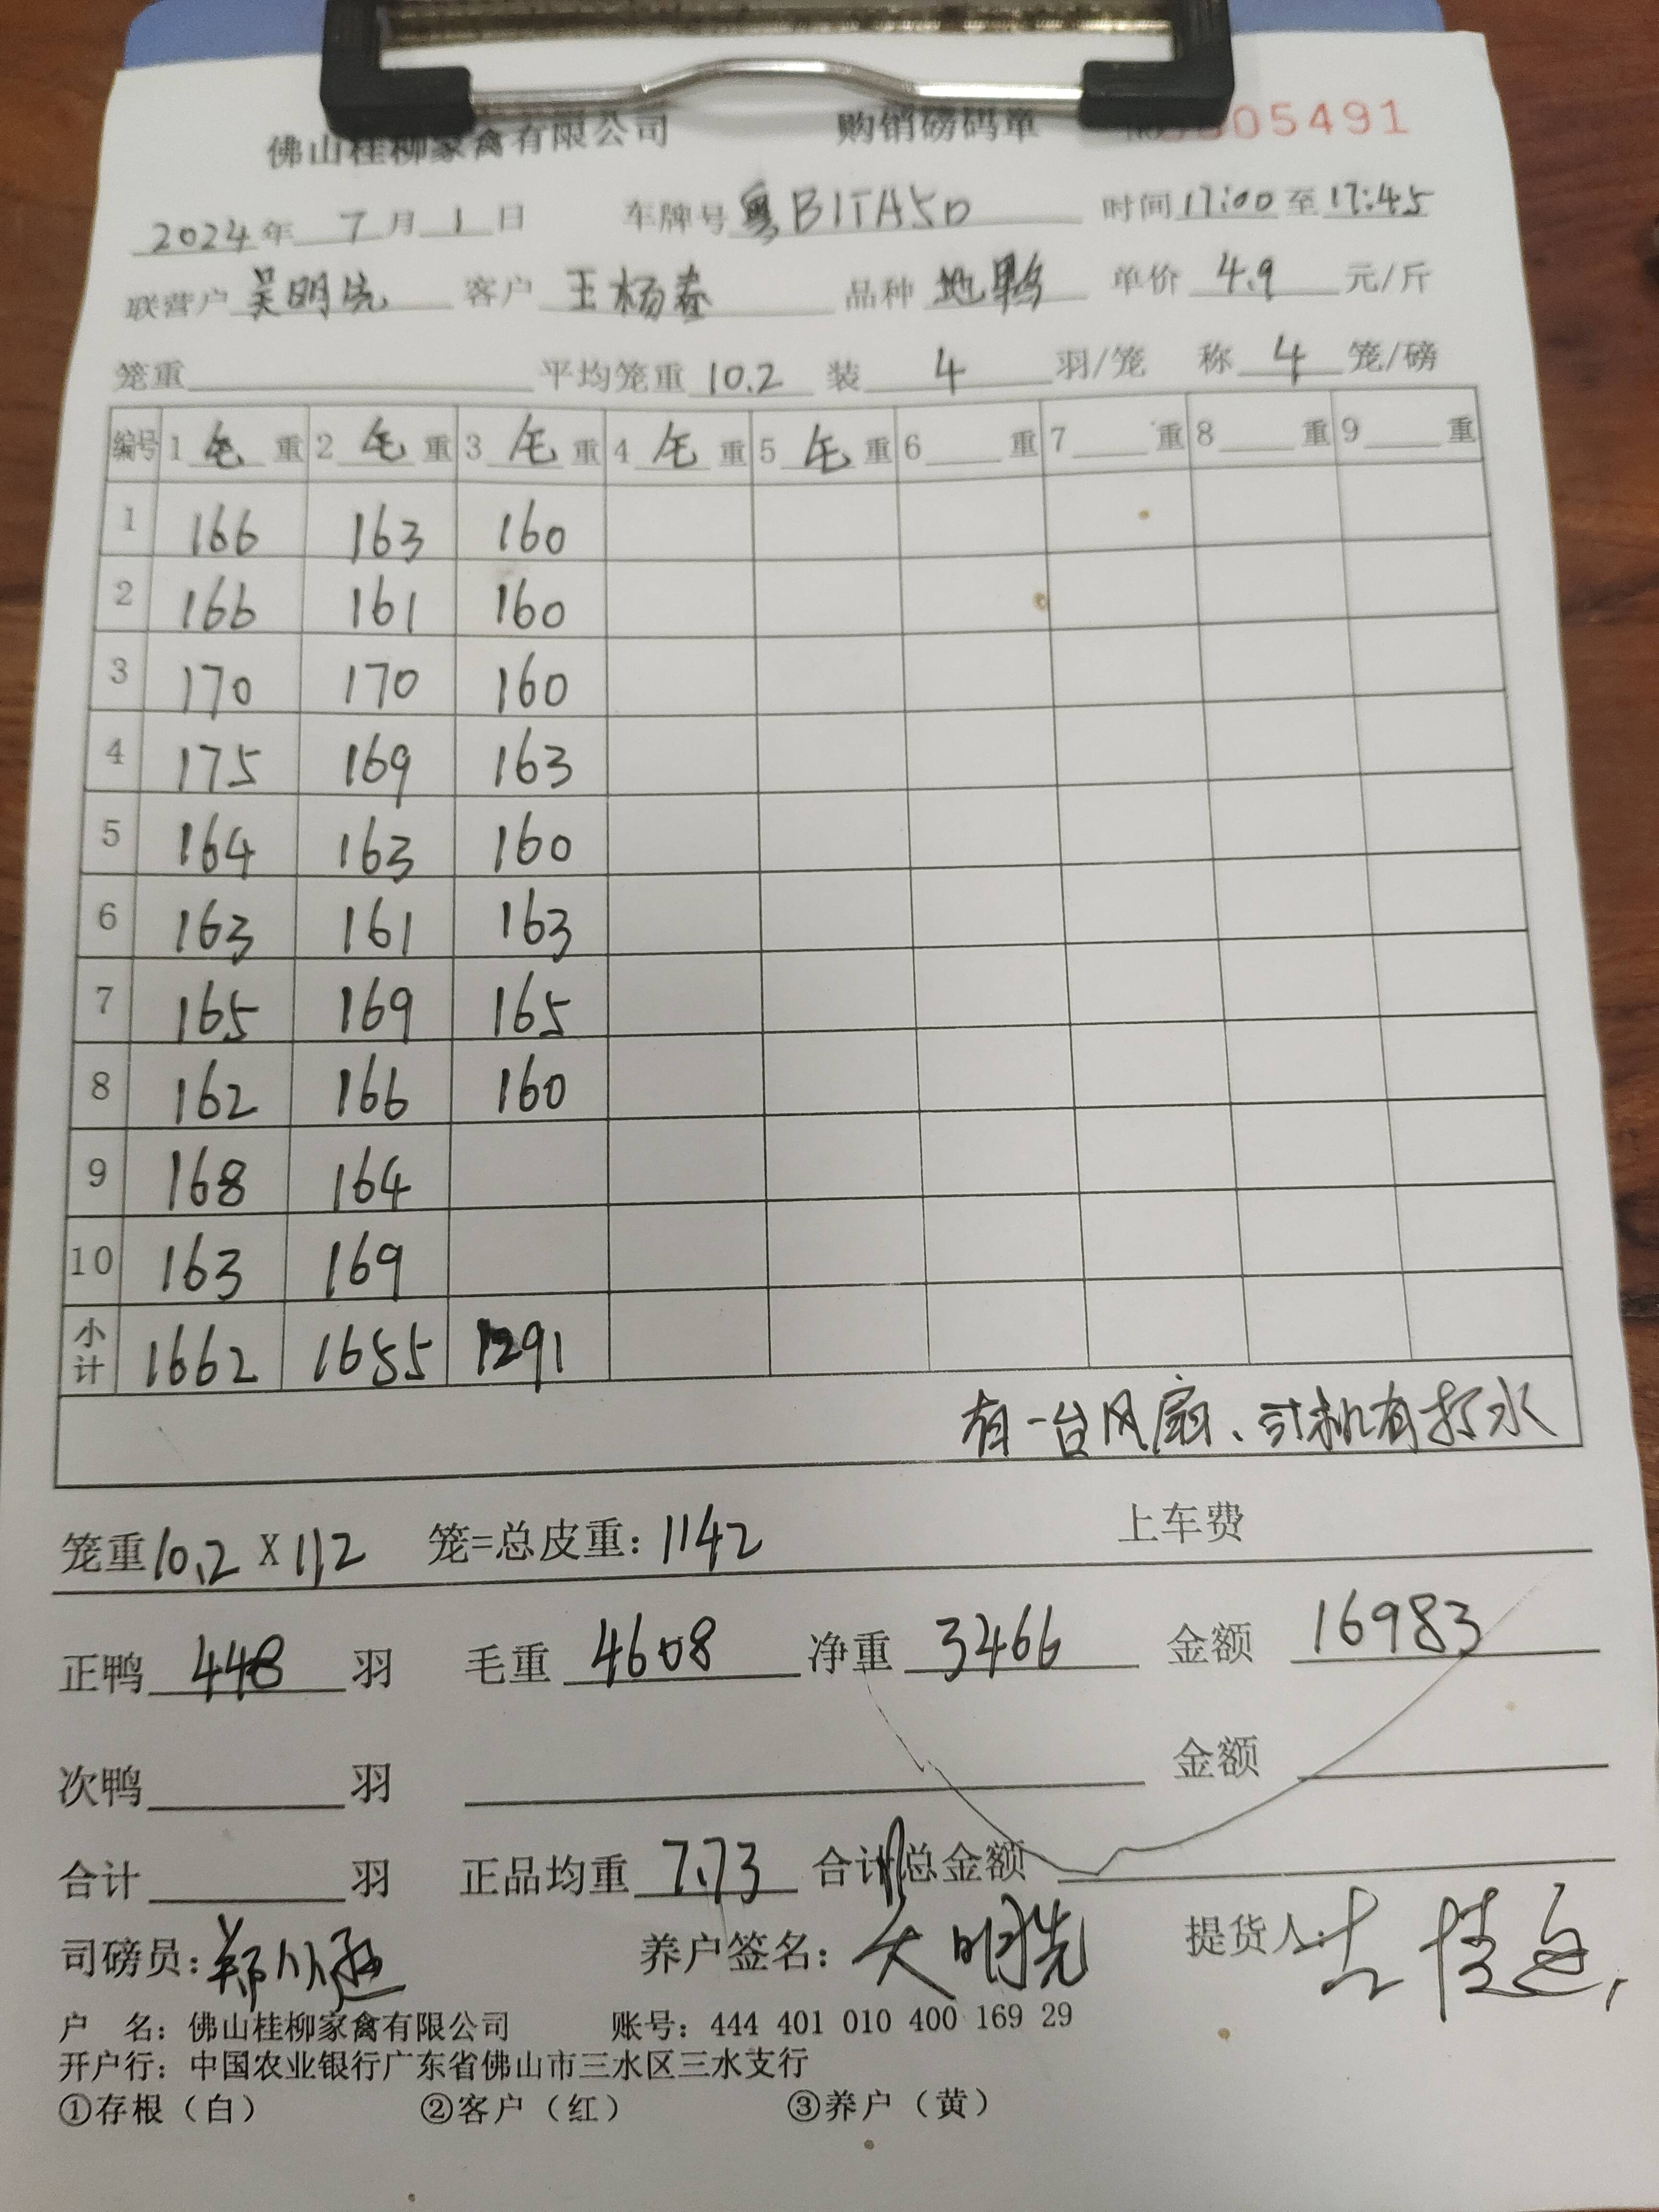 佛山桂柳家禽有限公司 购销磅码单 05491
2024年 7月 1日 车牌号 粤B1TA50 时间 17:00 至 17:45
联营户 吴明先 客户 王杨春 品种 地鸭 单价 4.9 元/斤
笼重 平均笼重 10.2 装 4 羽/笼 称 4 笼/磅
编号 1 毛 重 2 毛 重 3 毛 重 4 毛 重 5 毛 重 6 重 7 重 8 重 9 重
1 166 163 160
2 166 161 160
3 170 170 160
4 175 169 163
5 164 163 160
6 163 161 163
7 165 169 165
8 162 166 160
9 168 164
10 163 169
小计 1662 1655 1291
有一台风扇、司机有打水
笼重 10.2 X 112 笼=总皮重: 1142 上车费
正鸭 448 羽 毛重 4608 净重 3466 金额 16983
次鸭 羽 金额
合计 羽 正品均重 7.73 合计总金额
司磅员: 郑 养户签名: 吴明先 提货人:
户 名: 佛山桂柳家禽有限公司 账号: 444 401 010 400 169 29
开户行: 中国农业银行广东省佛山市三水区三水支行
①存根（白） ②客户（红） ③养户（黄）